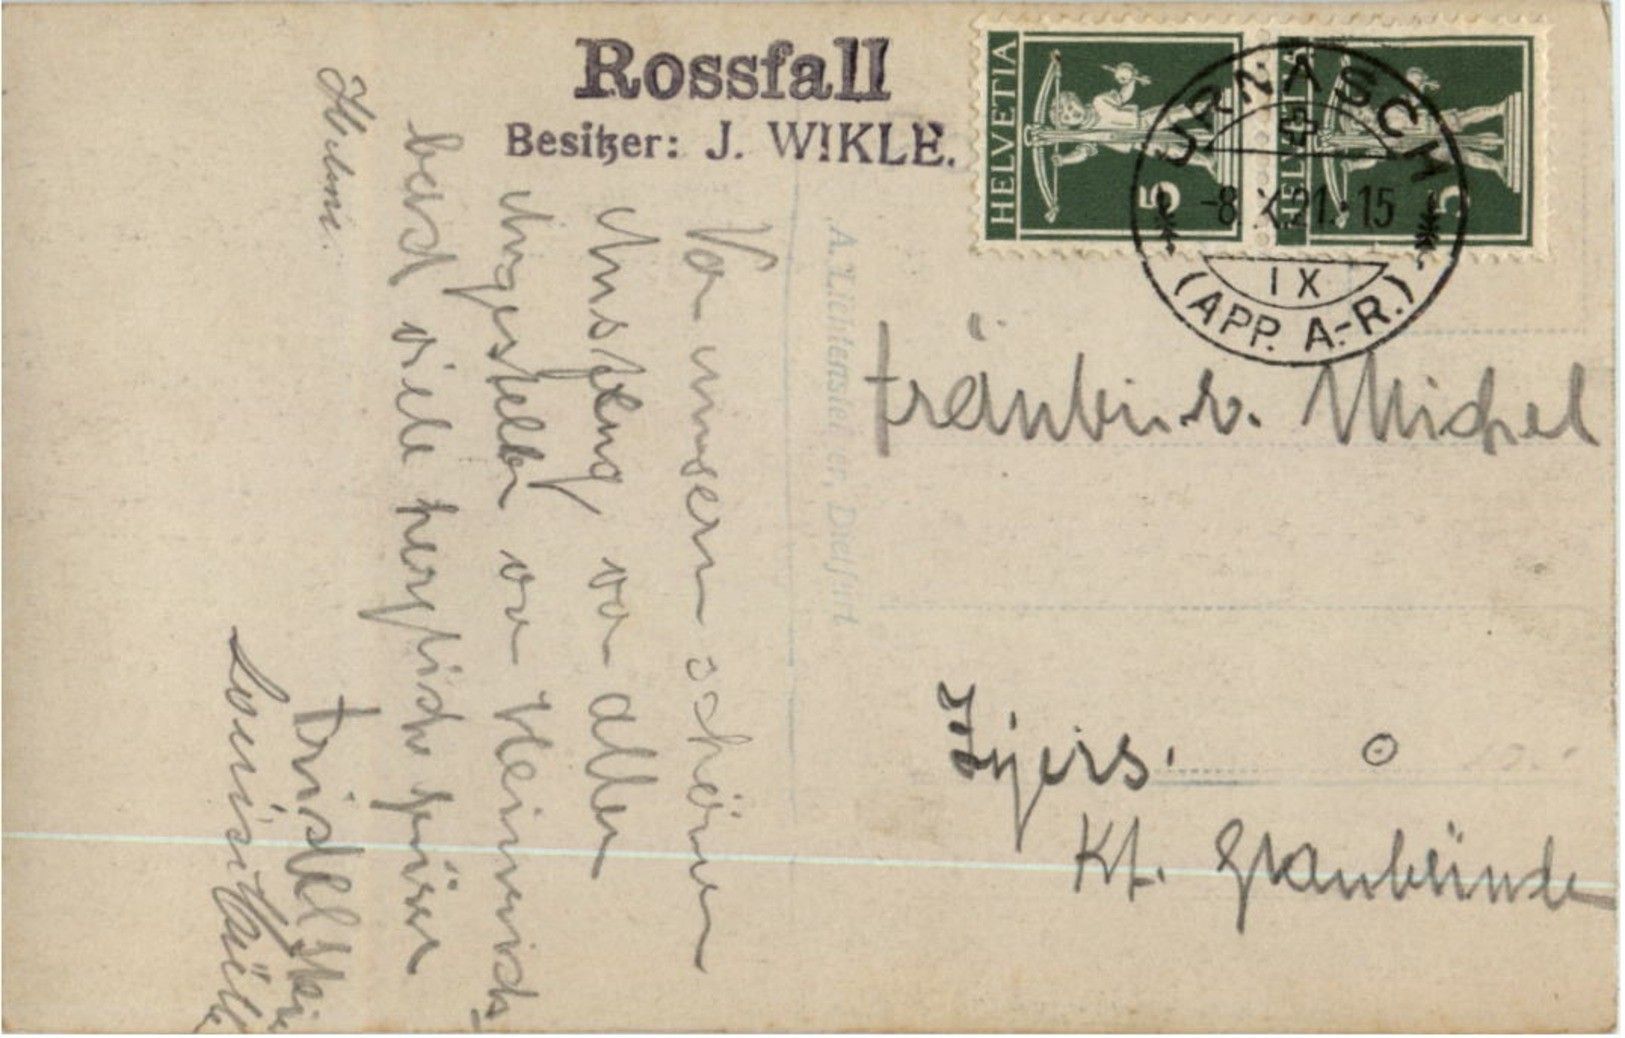 Rossfall
Besitzer: J. WIKLE.
HELVETIA
5
HELVETIA
5
URNÄSCH
-8.X.21.-15
IX
(APP. A.-R.)
A. Lichtensteiger, Dietfurt
Von unsern schönen
Ausflug von allen
Angestellten von Heinrichs-
bad viele herzliche Grüsse
Louise
Fräulein Michel
Zizers.
Kt. Graubünde